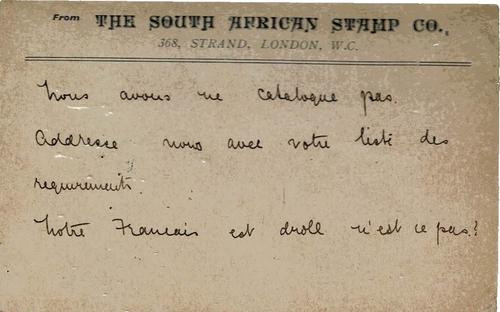 From THE SOUTH AFRICAN STAMP CO.,
368, STRAND, LONDON, W.C.
Nous avons ne catalogue pas.
Addresse nous avec votre liste des
requirements.
Notre Francais est droll n'est ce pas?